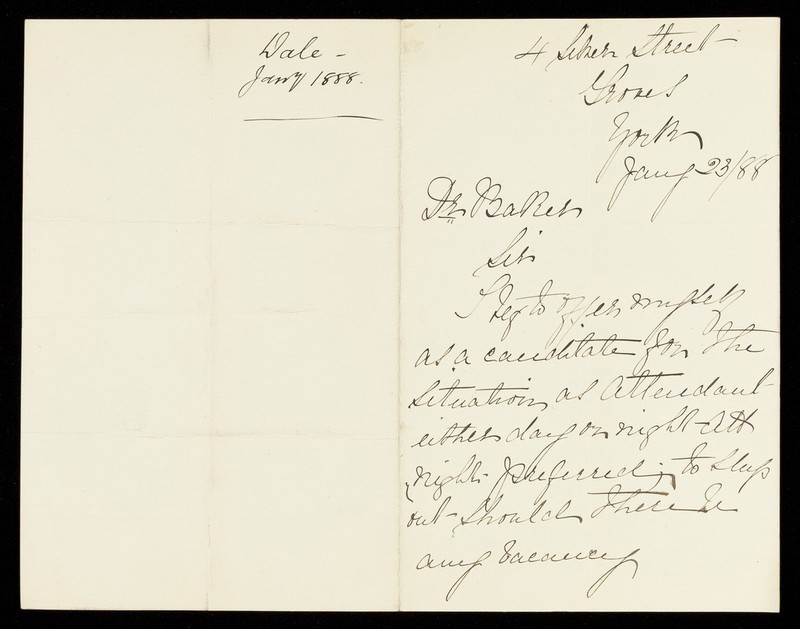 Dale -
Jany 1888.
4 Street
Groves
York
Jany 23/88
Dr Baker
Sir
I beg to offer myself
as a canditate for the
Situation as Attendant
either day or night Att
night preferred, to sleep
out Should there be
any Vacancy